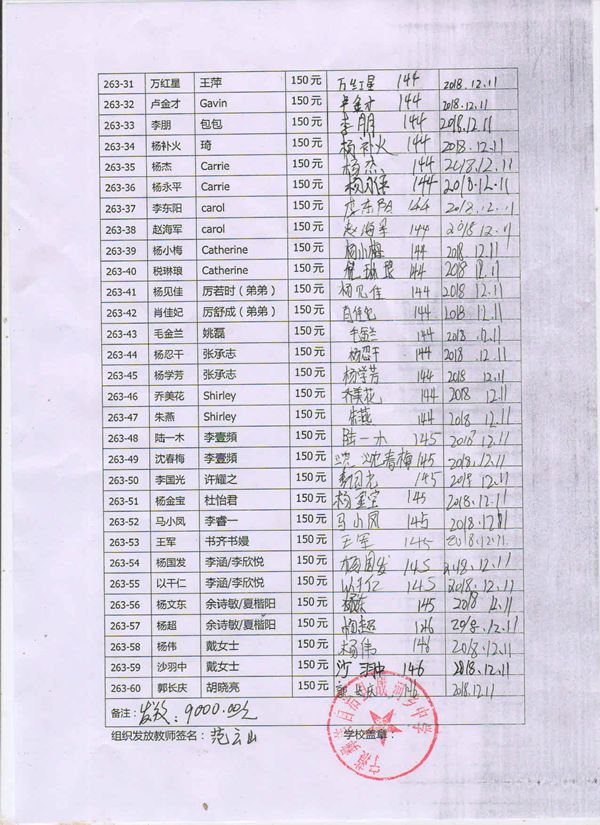 263-31 万红星 王萍 150元 万红星 144 2018.12.11
263-32 卢金才 Gavin 150元 卢金才 144 2018.12.11
263-33 李朋 包包 150元 李朋 144 2018.12.11
263-34 杨补火 琦 150元 杨补火 144 2018.12.11
263-35 杨杰 Carrie 150元 杨杰 144 2018.12.11
263-36 杨永平 Carrie 150元 144 2018.12.11
263-37 李东阳 carol 150元 李东阳 144 2018.12.11
263-38 赵海军 carol 150元 赵海军 144 2018.12.11
263-39 杨小梅 Catherine 150元 杨小梅 144 2018.12.11
263-40 税琳琅 Catherine 150元 144 2018.12.11
263-41 杨见佳 厉若时（弟弟） 150元 杨见佳 144 2018.12.11
263-42 肖佳妃 厉舒成（弟弟） 150元 144 2018.12.11
263-43 毛金兰 姚磊 150元 毛金兰 144 2018.12.11
263-44 杨忍干 张承志 150元 杨忍干 144 2018.12.11
263-45 杨学芳 张承志 150元 杨学芳 144 2018.12.11
263-46 乔美花 Shirley 150元 乔美花 144 2018.12.11
263-47 朱燕 Shirley 150元 朱燕 144 2018.12.11
263-48 陆一木 李壹頻 150元 陆一木 145 2018.12.11
263-49 沈春梅 李壹頻 150元 沈春梅 145 2018.12.11
263-50 李国光 许耀之 150元 145 2018.12.11
263-51 杨金宝 杜怡君 150元 杨金宝 145 2018.12.11
263-52 马小凤 李睿一 150元 马小凤 145 2018.12.11
263-53 王军 书齐书嫚 150元 王军 145 2018.12.11.
263-54 杨国发 李涵/李欣悦 150元 杨国发 145 2018.12.11
263-55 以干仁 李涵/李欣悦 150元 145 2018.12.11
263-56 杨文东 余诗敏/夏楷阳 150元 145 2018 12.11
263-57 杨超 余诗敏/夏楷阳 150元 杨超 146 2018.12.11
263-58 杨伟 戴女士 150元 杨伟 146 2018.12.11
263-59 沙羽中 戴女士 150元 146 2018.12.11
263-60 郭长庆 胡晓亮 150元 郭长庆 146 2018.12.11
备注： 发放：9000.00元
组织发放教师签名：范云山 学校盖章：
自治县战河乡中学